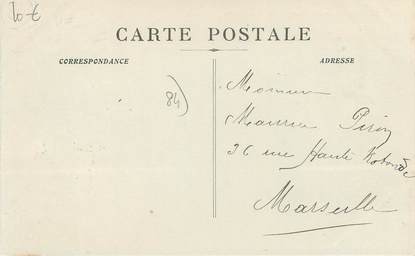 10 €
CARTE POSTALE
CORRESPONDANCE
ADRESSE
84)
Monsieur
Maurice
36 rue Haute Rotonde
Marseille